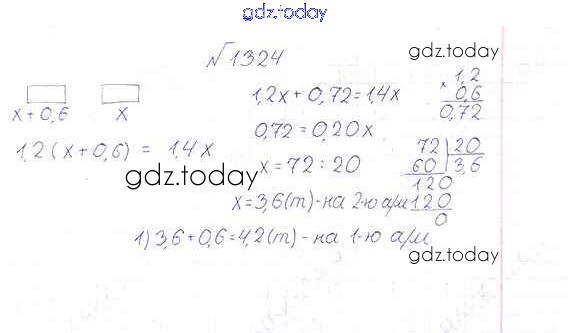 gdz.today
№1324
gdz.today
x+0,6 x
1,2(x+0,6) = 1,4x
gdz.today
1,2x+0,72=1,4x
0,72=0,20x
x=72:20
x=3,6(т)-на 2-ю а/м
1)3,6+0,6=4,2(т)-на 1-ю а/м
× 1,2
0,6
0,72
72 20
60 3,6
120
120
0
gdz.today